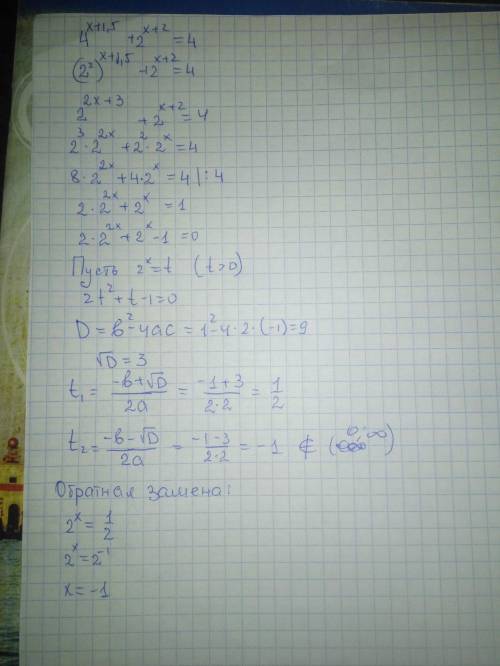 4^{x+1,5} + 2^{x+2} = 4
(2²)^{x+1,5} + 2^{x+2} = 4
2^{2x+3} + 2^{x+2} = 4
2³ · 2^{2x} + 2² · 2^x = 4
8 · 2^{2x} + 4 · 2^x = 4 | : 4
2 · 2^{2x} + 2^x = 1
2 · 2^{2x} + 2^x - 1 = 0
Пусть 2^x = t (t > 0)
2t² + t - 1 = 0
D = b² - 4ac = 1² - 4 · 2 · (-1) = 9
√D = 3
t₁ = (-b + √D)/2a = (-1 + 3)/(2 · 2) = 1/2
t₂ = (-b - √D)/2a = (-1 - 3)/(2 · 2) = -1 ∉ (0; ∞)
Обратная замена:
2^x = 1/2
2^x = 2^{-1}
x = -1